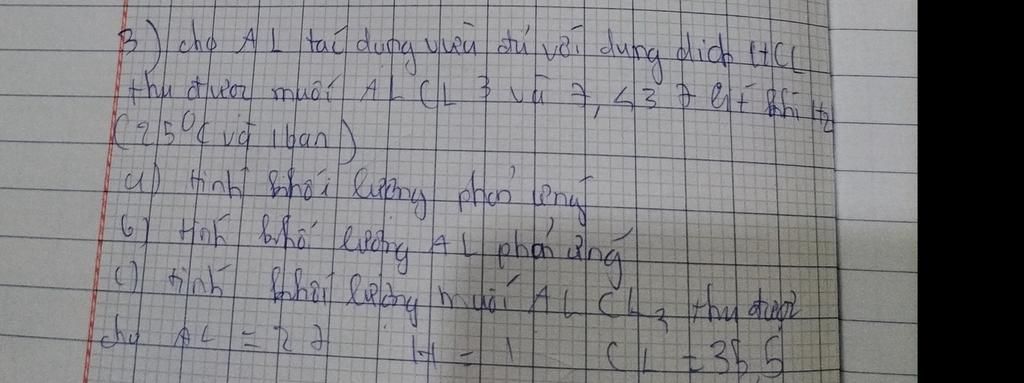 3) cho AL tác dụng vừa đủ với dung dịch HCL
thu được muối ALCL3 và 7,437 lít khí H2
(25°C và 1 ban)
a) tính khối lượng phản ứng
b) tính khối lượng AL phản ứng
c) tính khối lượng muối ALCL3 thu được
cho AL = 27 H = 1 CL = 35,5